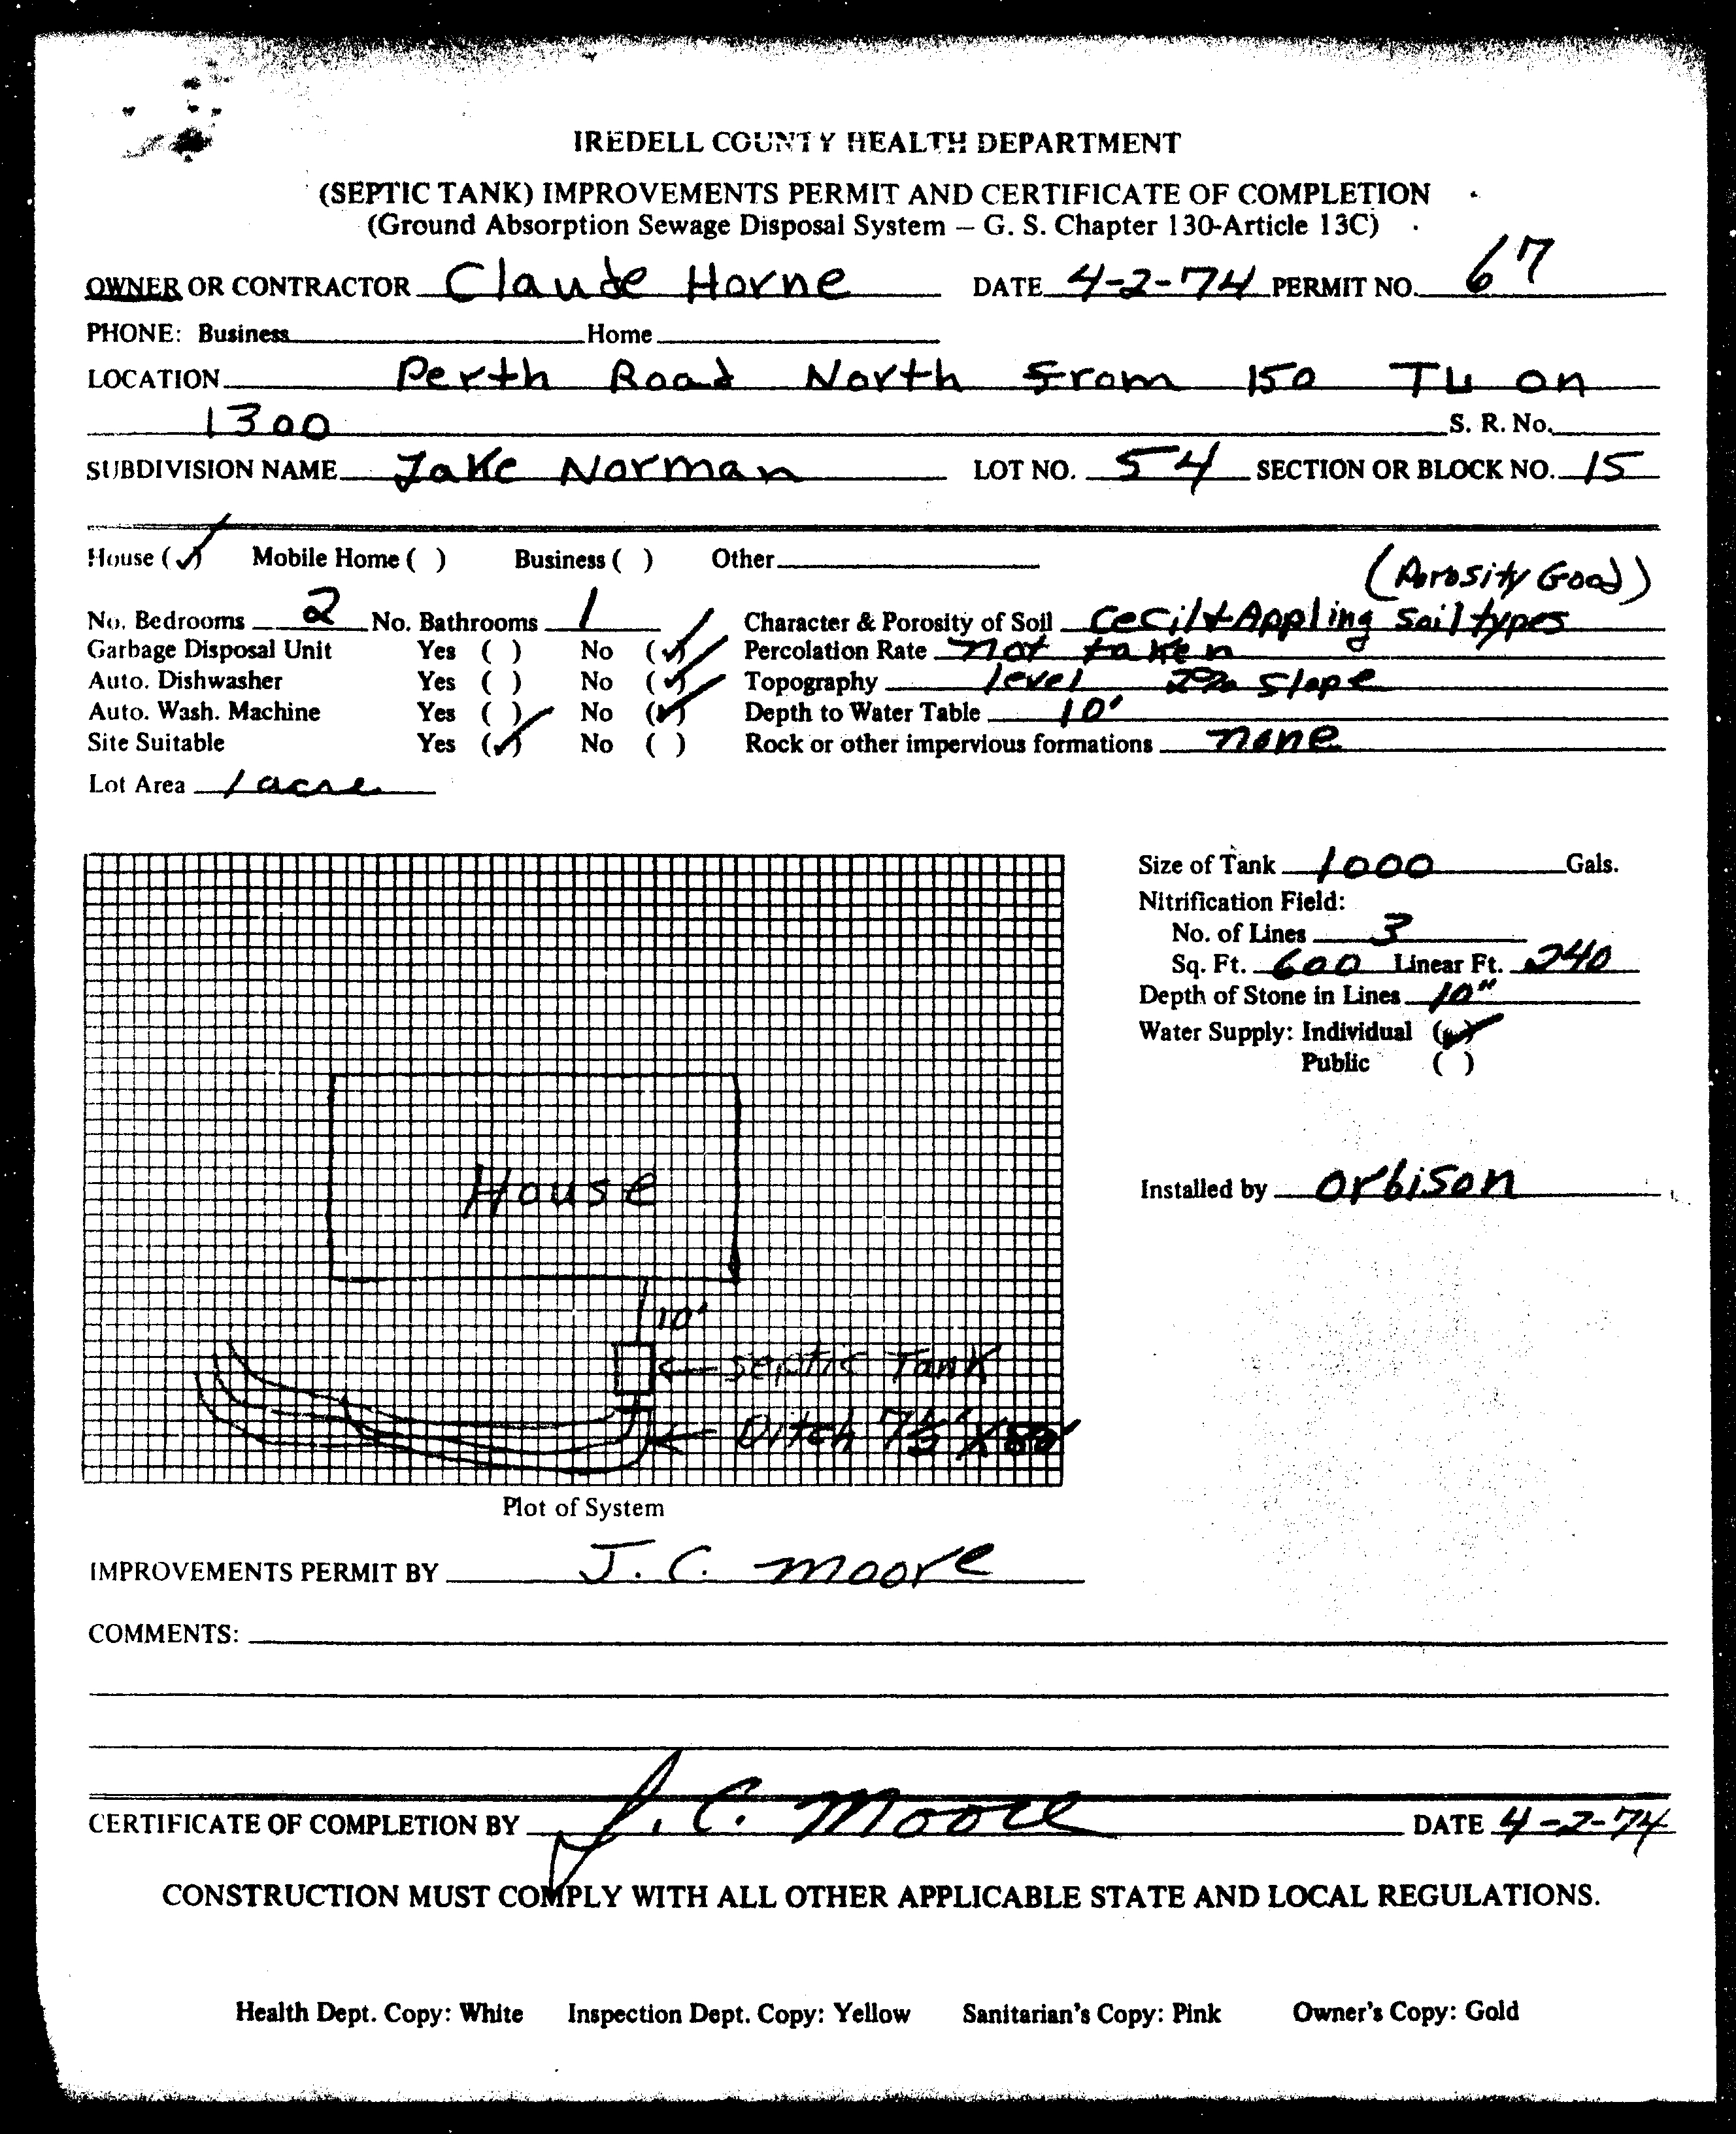 IREDELL COUNTY HEALTH DEPARTMENT
(SEPTIC TANK) IMPROVEMENTS PERMIT AND CERTIFICATE OF COMPLETION
(Ground Absorption Sewage Disposal System – G. S. Chapter 130-Article 13C)
OWNER OR CONTRACTOR Claude Horne DATE 4-2-74 PERMIT NO. 67
PHONE: Business Home
LOCATION Perth Road North From 150 TL on
1300 S. R. No.
SUBDIVISION NAME Lake Norman LOT NO. 54 SECTION OR BLOCK NO. 15
House (✓) Mobile Home ( ) Business ( ) Other
(Porosity Good)
No. Bedrooms 2 No. Bathrooms 1 Character & Porosity of Soil Cecil & Appling Soil types
Garbage Disposal Unit Yes ( ) No (✓) Percolation Rate not taken
Auto. Dishwasher Yes ( ) No (✓) Topography level 2% slope
Auto. Wash. Machine Yes ( ) No (✓) Depth to Water Table 10'
Site Suitable Yes (✓) No ( ) Rock or other impervious formations none
Lot Area 1 acre
Size of Tank 1000 Gals.
Nitrification Field:
No. of Lines 3
Sq. Ft. 600 Linear Ft. 240
Depth of Stone in Lines 10"
Water Supply: Individual (✓)
Public ( )
Installed by Orbison
House
10'
Septic Tank
Ditch X 80'
Plot of System
IMPROVEMENTS PERMIT BY J. C. Moore
COMMENTS:
CERTIFICATE OF COMPLETION BY J. C. Moore DATE 4-2-74
CONSTRUCTION MUST COMPLY WITH ALL OTHER APPLICABLE STATE AND LOCAL REGULATIONS.
Health Dept. Copy: White Inspection Dept. Copy: Yellow Sanitarian's Copy: Pink Owner's Copy: Gold